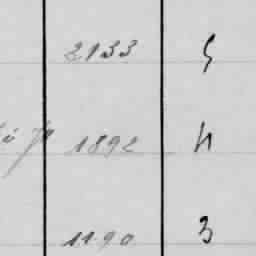 2133 5
1892 4
1190 3